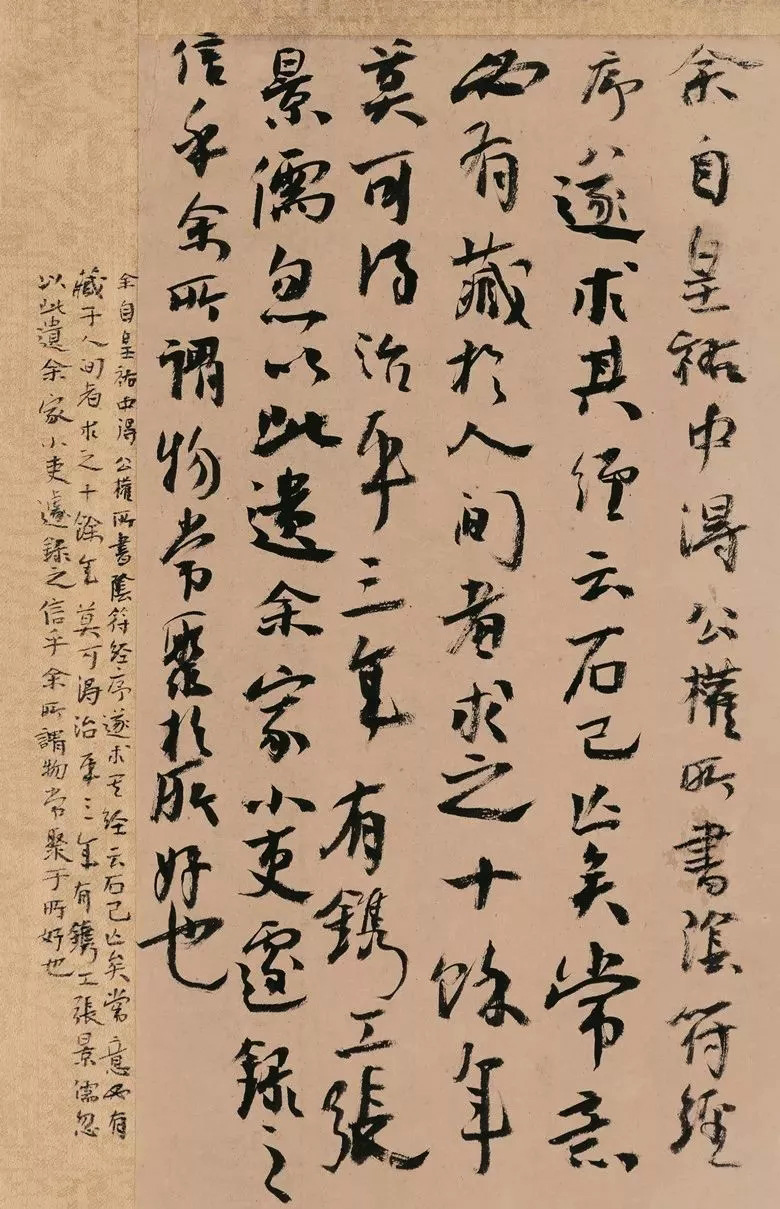 余自皇祐中得公權所書陰符經
序遂求其經云石已亡矣常意
必有藏於人间者求之十餘年
莫可得治平三年有鐫工張
景儒忽以此遺余家小吏遽録之
信乎余所謂物常聚於所好也
余自皇祐中得公權所書陰符經序遂求其經云石已亡矣常意必有
藏于人间者求之十餘年莫可得治平三年有鐫工張景儒忽
以此遺余家小吏遽録之信乎余所謂物常聚于所好也